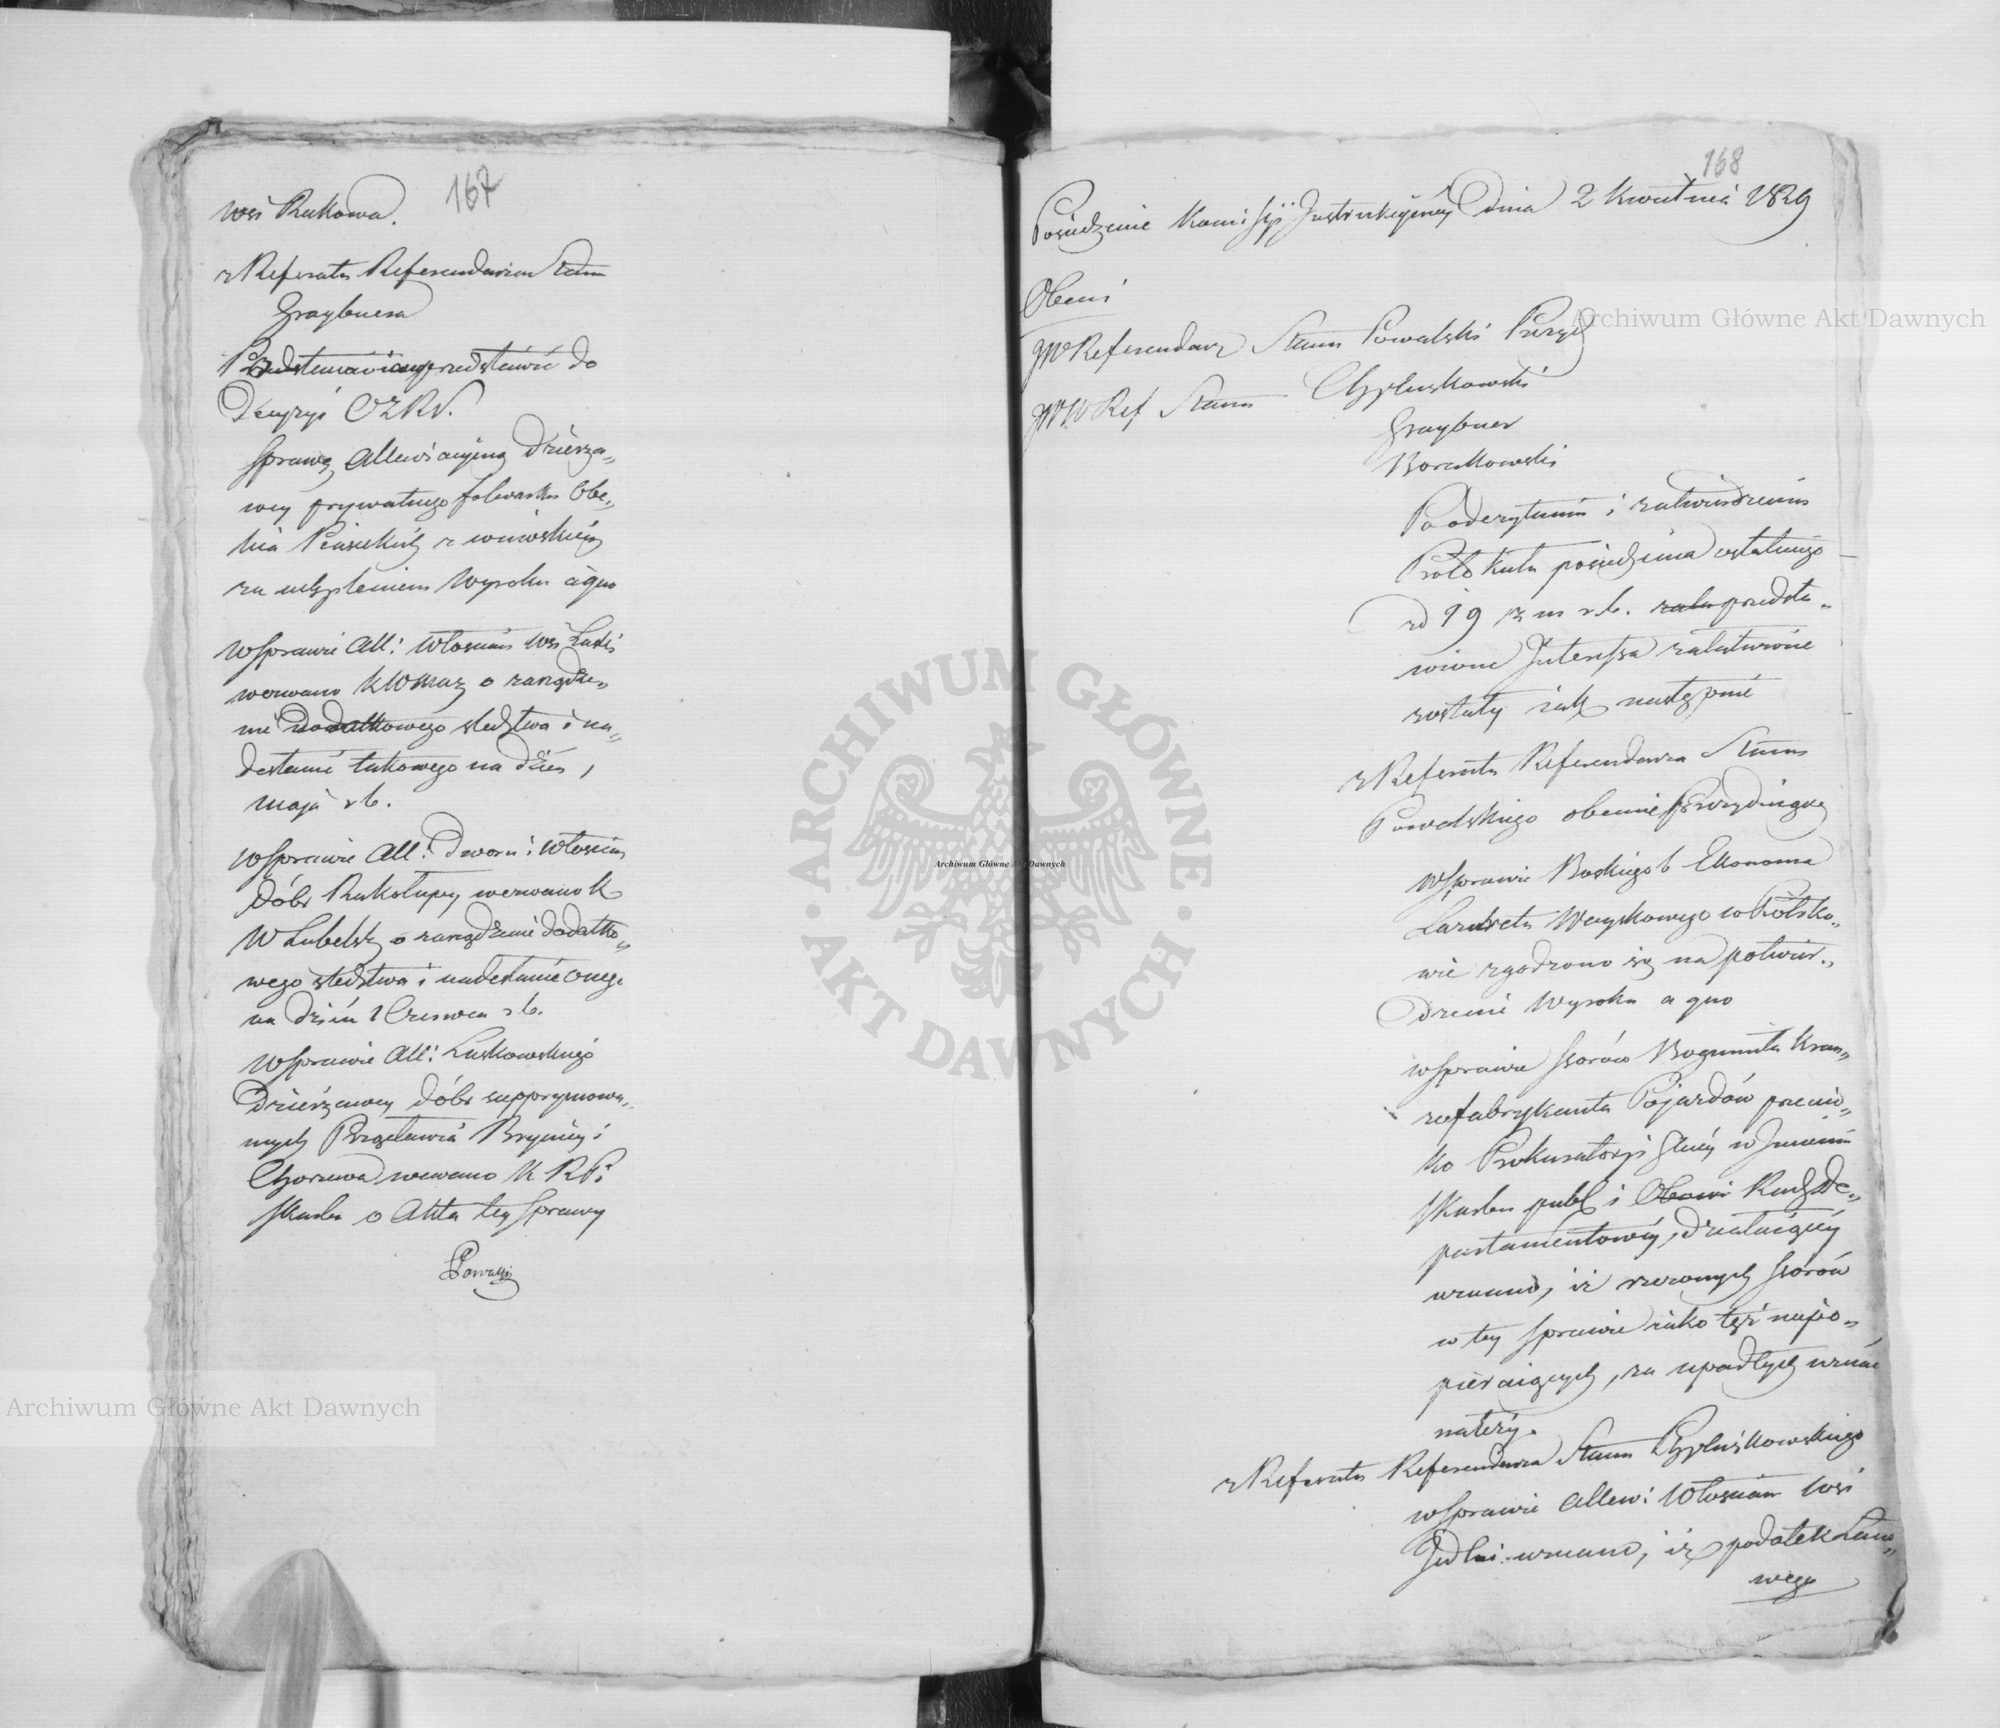 167
wsi Rukowa.
z Referatu Referendarza Stanu
Graybnera
przedstawić do
Decyzyi OZRN.
sprawę allewiacyjną Dzierża„
wcy prywatnego folwarku Obe„
za uchyleniem Wyroku a quo
W sprawie All: Włościan Wsi
wezwano KWMaz o zarządze„
nie Dodatkowego śledztwa i na„
desłanie takowego na dzień 1
maja r b.
W sprawie All: Dworu i Włościan
Dóbr Rakołupy wezwano K
W Lubelską o zarządzenie dodatko„
wego śledztwa i nadesłanie onego
na dzień 1 Czerwca r b.
W sprawie All: Łuskowskiego
Dzierżawcy dóbr supprymowa„
nych Brynicy i
wezwano K R P i
Skarbu o Akta tey sprawy
Powalski
168
Posiedzenie Kommissyi Instrukcyiney dnia 2 Kwietnia 1829
Obecni
JW Referendarz Stanu Powalski Prezyd
JWW Ref Stanu Chyluskowski
Graybner
Borakowski
Po odczytaniu i zatwierdzeniu
Protokułu posiedzenia ostatniego
z d 19 z m r b. przedsta„
wione Interessa załatwione
zostały iak następuie
z Referatu Referendarza Stanu
Powalskiego obecnie Prezyduiącego
W sprawie Boskiego b Ekonoma
Lazaretu Woyskowego w Pólko„
wie zgodzono się na potwier„
dzenie Wyroku a quo
w sprawie ssorów Bogumiła Kran„
za fabrykanta Pojazdów przeciw„
ko Prokuratoryi Głney w Imieniu
Skarbu publ i Rady De„
partamentowey, działaiącey
uznano, iż rzeczonych ssorów
w tey sprawie iako też niepo„
pieraiących, za upadłych uznać
należy.
z Referatu Referendarza Stanu Chyluskowskiego
w sprawie allew: Włościan wsi
Jedlni uznano, iż podatek Łano„
wego
Archiwum Główne Akt Dawnych
Archiwum Główne Akt Dawnych
Archiwum Główne Akt Dawnych
ARCHIWUM GŁÓWNE · AKT DAWNYCH ·